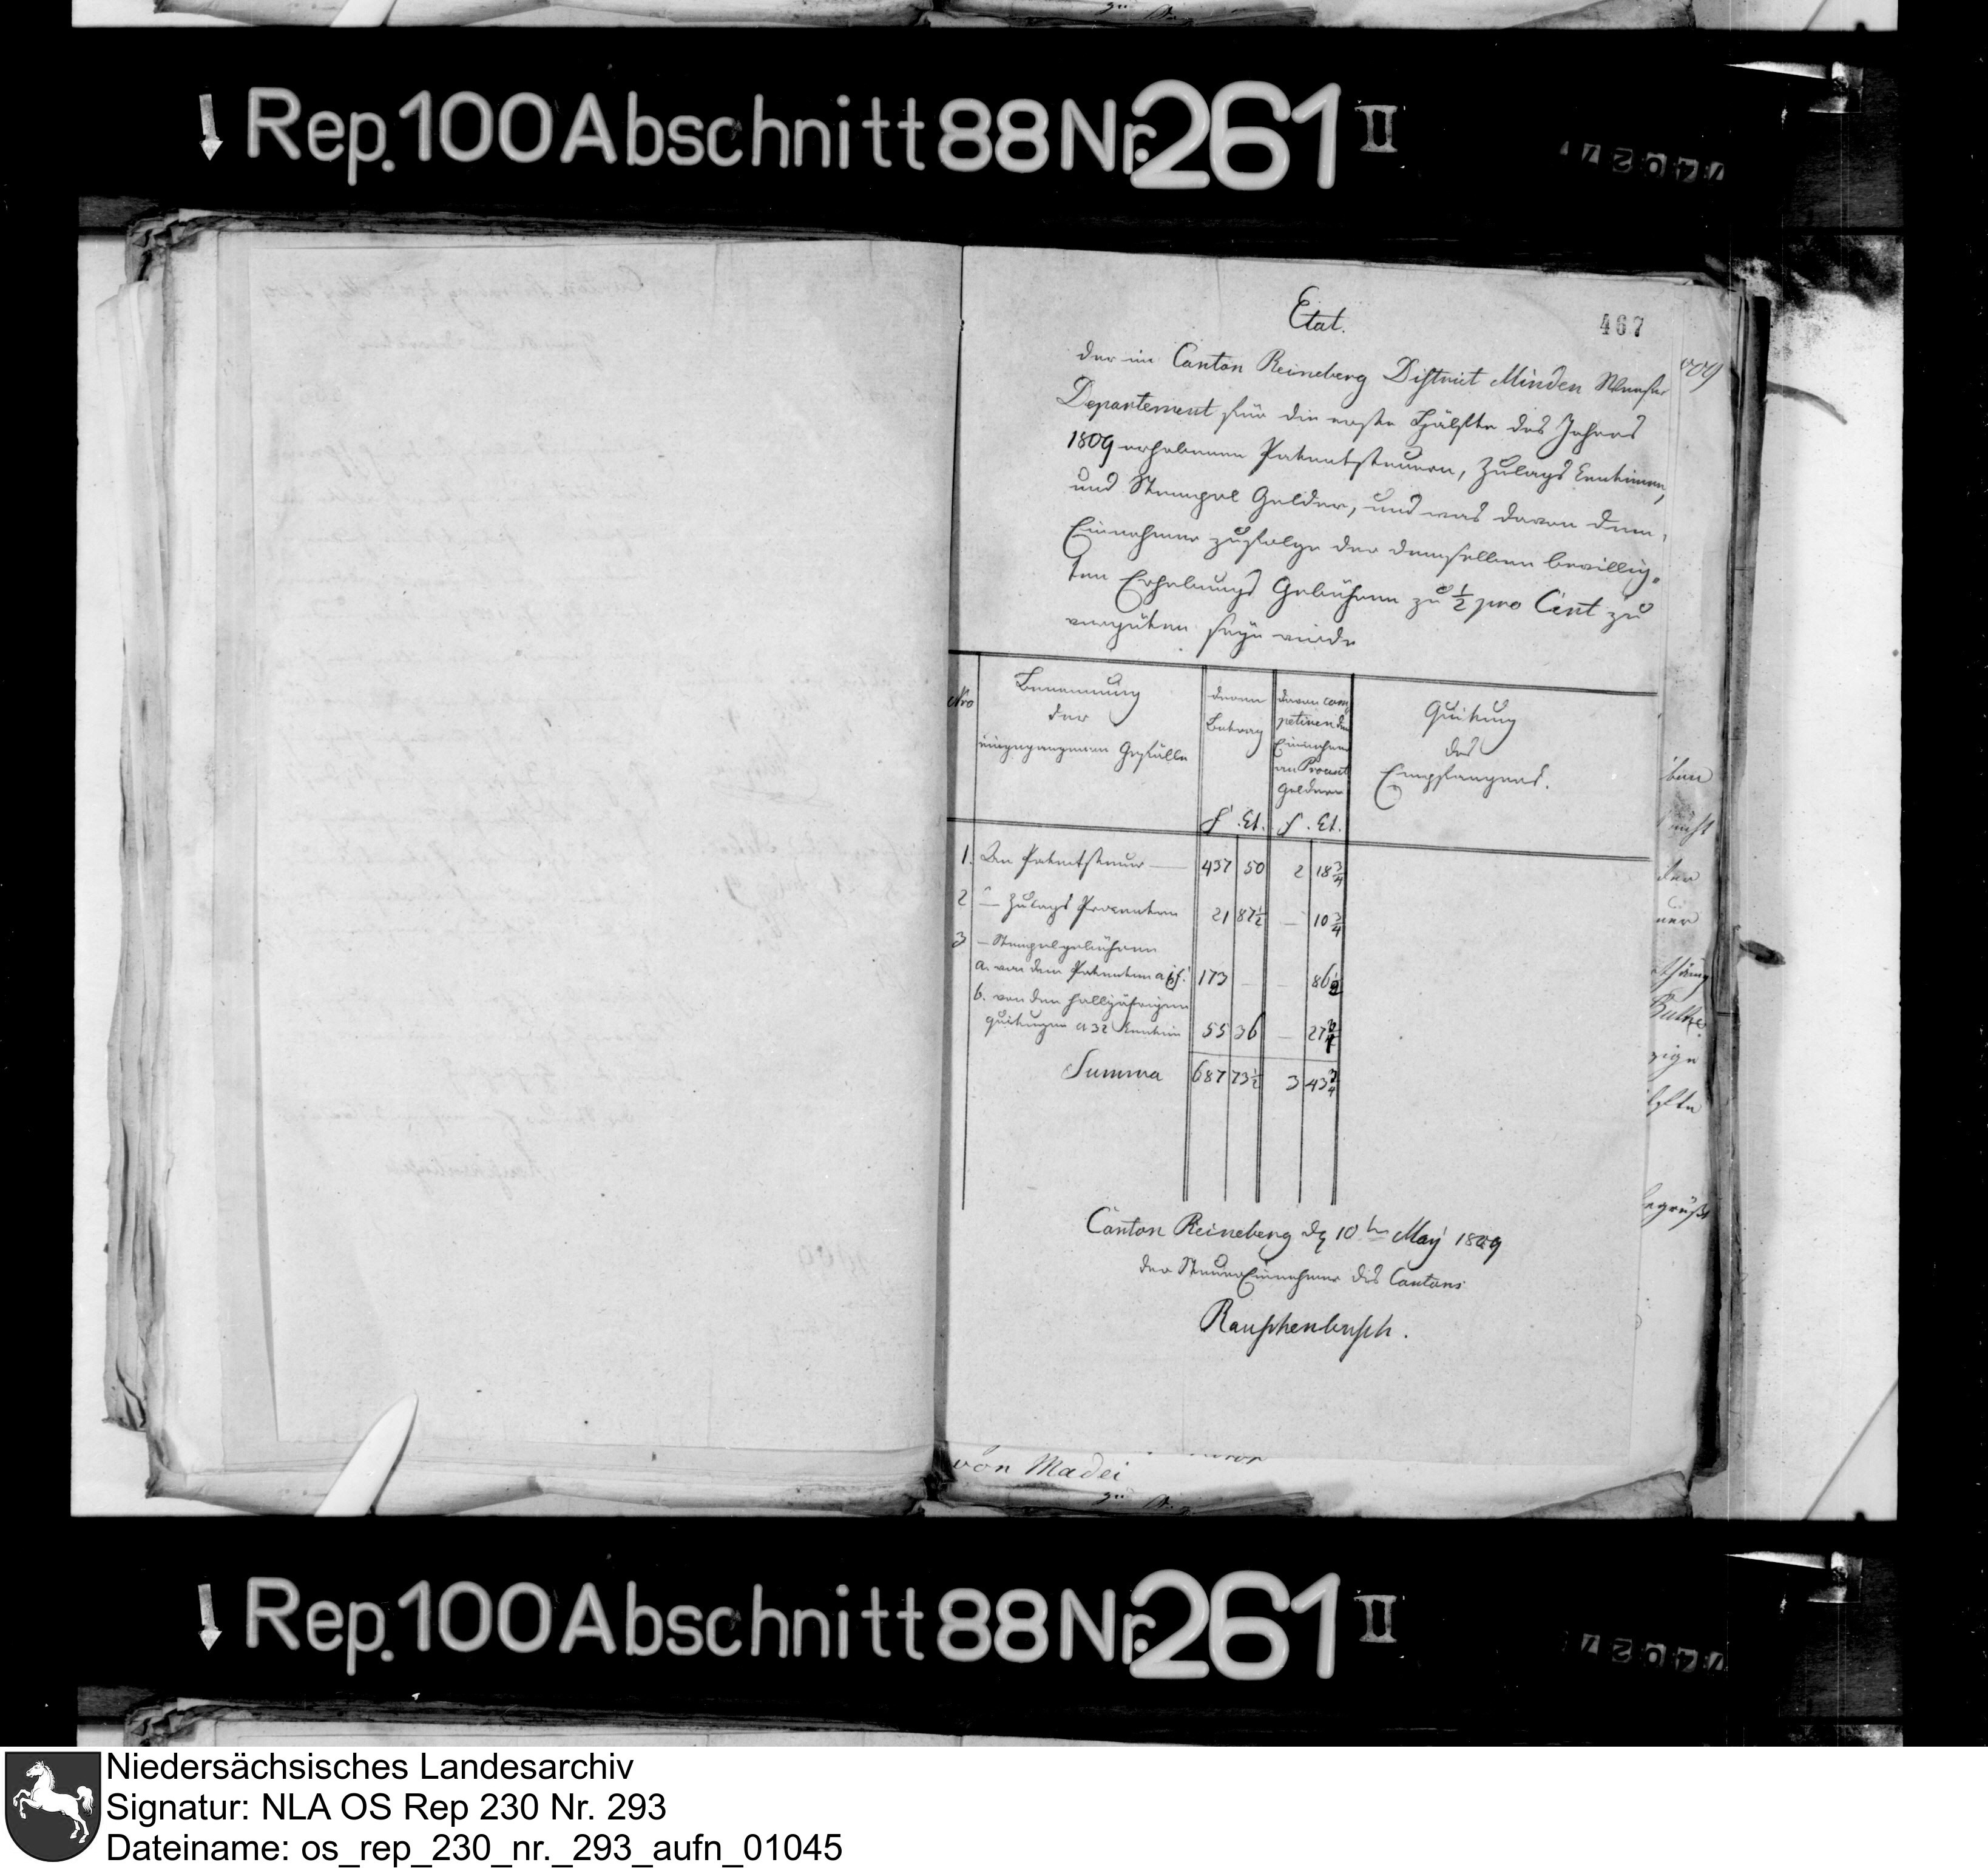 Rep. 100 Abschnitt 88 Nr. 261 II
467
Etat.
der im Canton Reineberg District Minden Weser
Departement für die erste Hälfte des Jahres
1809 erhobenen Patentsteuern, Zulags Centimen,
und Stempel Gelder, und was davon dem
Einnehmer zufolge der demselben bewillig-
ten Erhebungs Gebühren zu ½ pro Cent zu
vergüten seyn würde
Nro
Benennung
der
eingegangenen Gefälle
deren
Betrag
davon com
petiren dem
Einnehmer
an Procent
Geldern
Quitung
des
Empfängers.
f. Ct. f. Ct.
1. An Patentsteuer — 437 50 2 18¾
2 — Zulags Procenten 21 87½ — 10¾
3 — Stempelgebühren
a. von den Patenten a 173 — — 86½
b. von den halbjährigen
quitungen a 32 Centim 55 36 — 27¾
Summa 687 73½ 3 43¾
Canton Reineberg den 10ten May 1809
der SteuerEinnehmer des Cantons
Rauschenbusch.
von Madei
Rep. 100 Abschnitt 88 Nr. 261 II
Niedersächsisches Landesarchiv
Signatur: NLA OS Rep 230 Nr. 293
Dateiname: os_rep_230_nr._293_aufn_01045